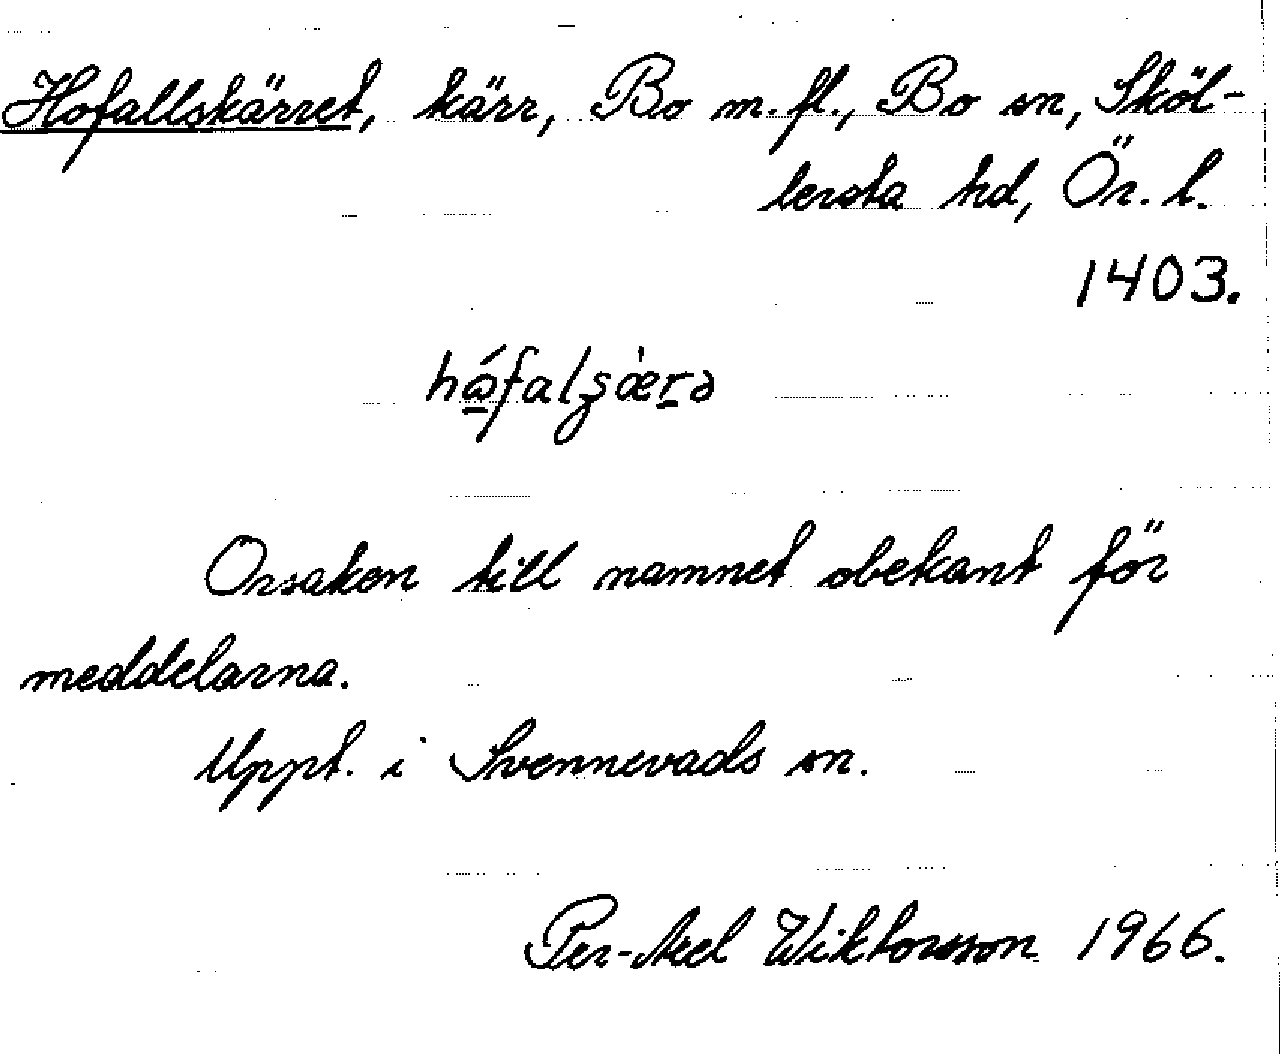 Hofallskärret, kärr, Bo m.fl., Bo sn, Sköl-
lersta hd, Ör. l.
1403.
Orsaken till namnet obekant för
meddelarna.
Uppt. i Svennevads sn.
Per-Axel Wiktorsson 1966.